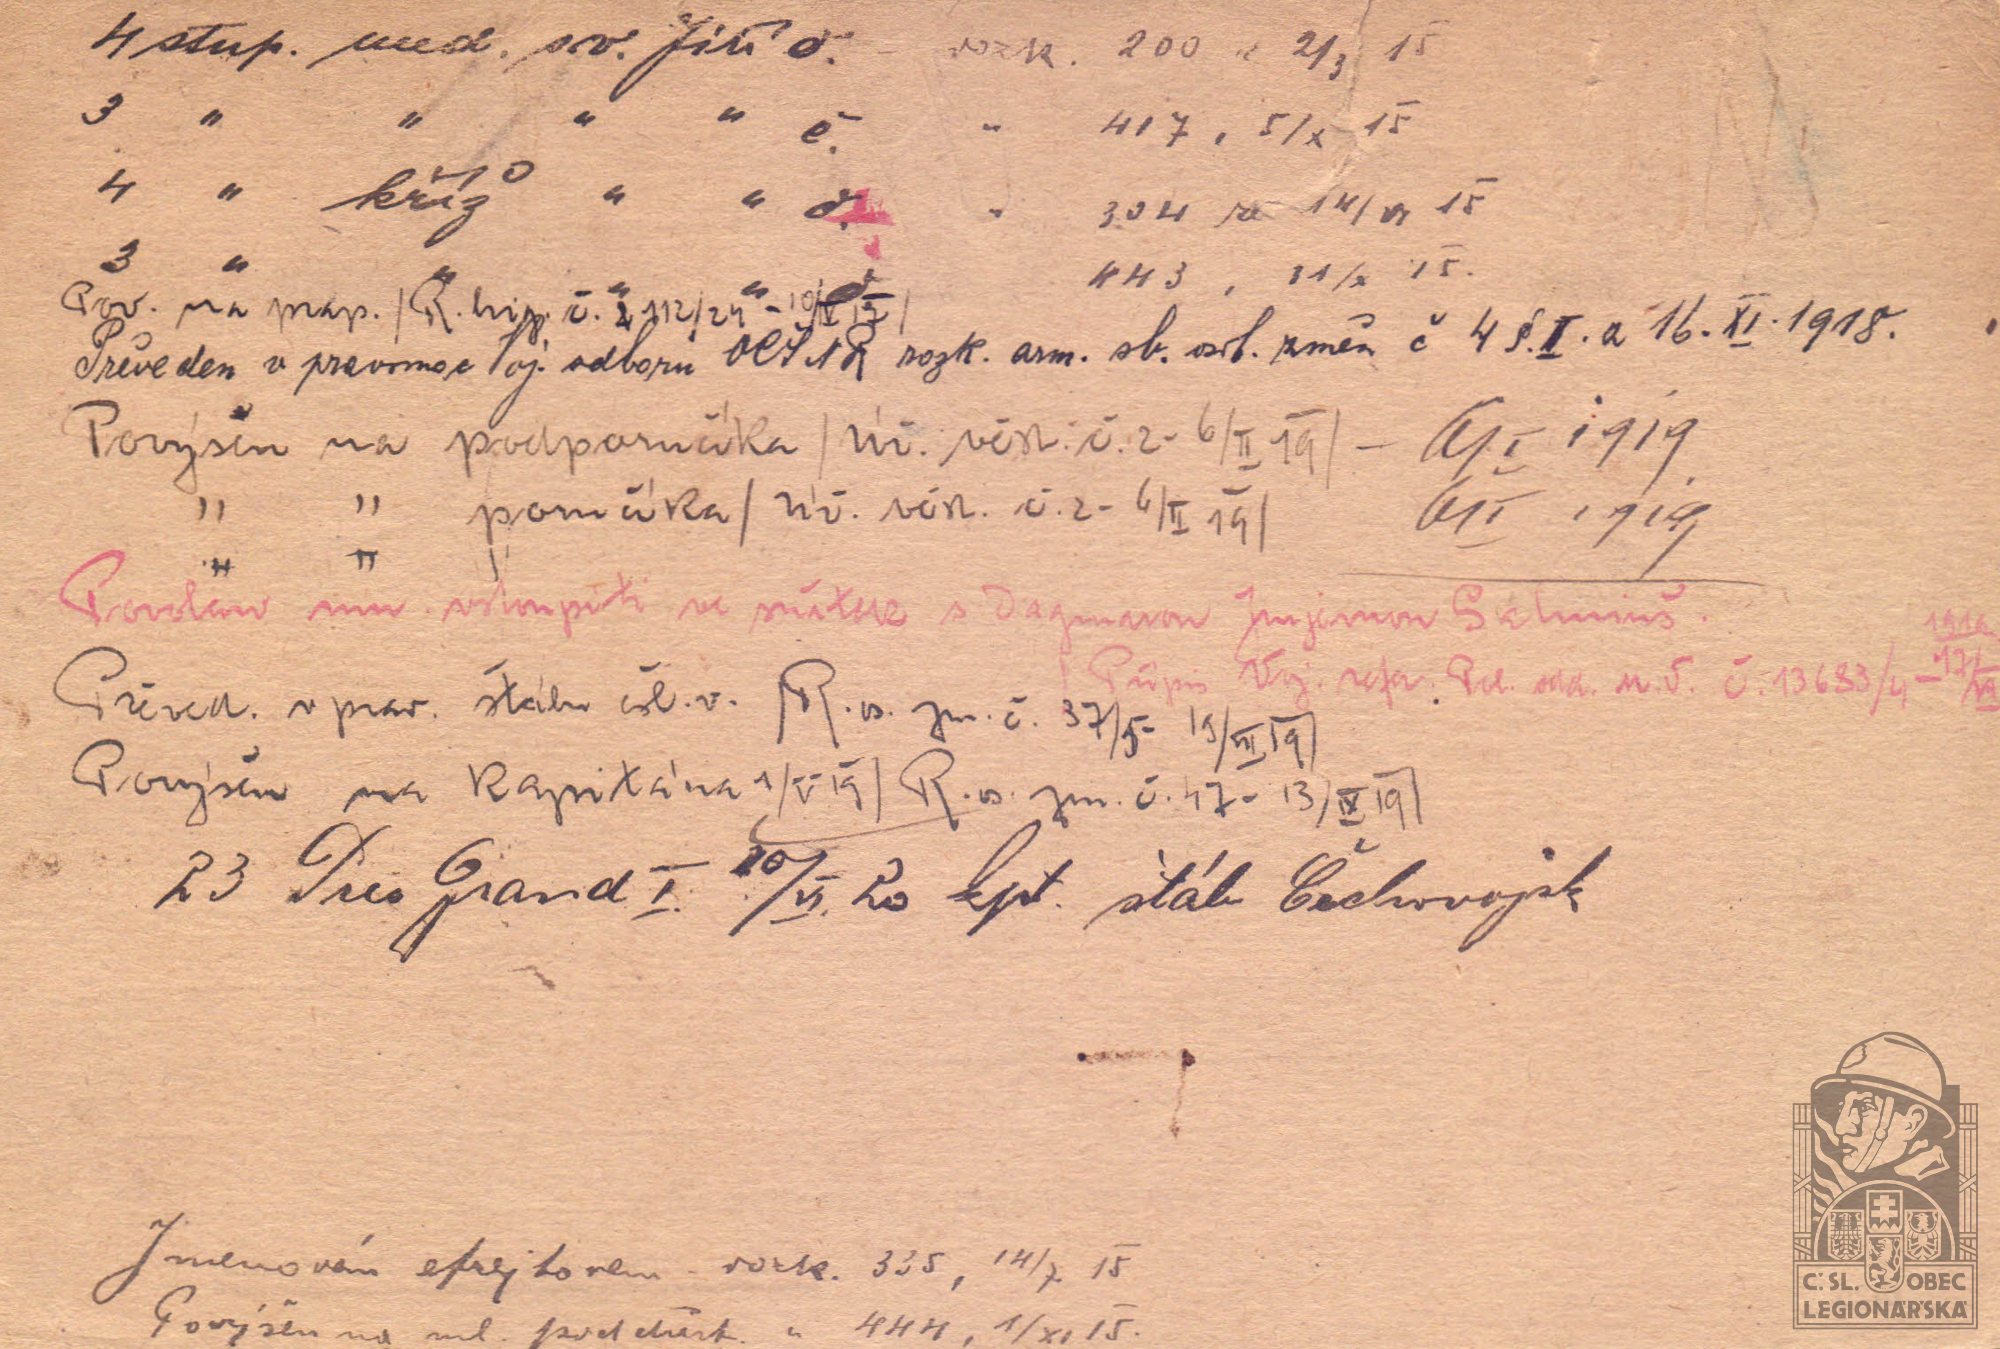 4 stup. med. sv. Jiří č. – rozk. 200 z 21/3 15
3 " " " " č. " 417, 5/X 15
4 " kříž " " č. " 304 ze 14/VI 15
3 " " " " č. 443, 31/X 15.
Pov. na prap. /R. brig. č. 112/24 - 10/V 17/
Převeden v pravomoc Voj. odboru OČSNR rozk. arm. sb. osob. změn č 4 §. II. a 16. XI. 1918.
Povýšen na podporučíka / Úř. věst. č. 2 - 6/II 19/ – 1919
" " poručíka / Úř. věst. č. 2 - 6/II 19/ 1919
" "
Povoleno mu vstoupiti ve sňatek s Dagmarou
1919
Přípis Voj. č. 13683/4 - 17/VI
Převed. v prav. štábu čsl. v. /R. os. zm. č. 37/5 - 19/VII 19/
Povýšen na kapitána 1/V 19/ R. os. zm. č. 47 - 13/IX 19/
23 Pres Grand I. 20/VI. 20 kpt. štáb Čechovojsk
Jmenován efrejtorem - rozk. 335, 14/7 15
Povýšen na ml. poddůst. " 444, 1/XI 15.
Č.SL. OBEC
LEGIONÁŘSKÁ